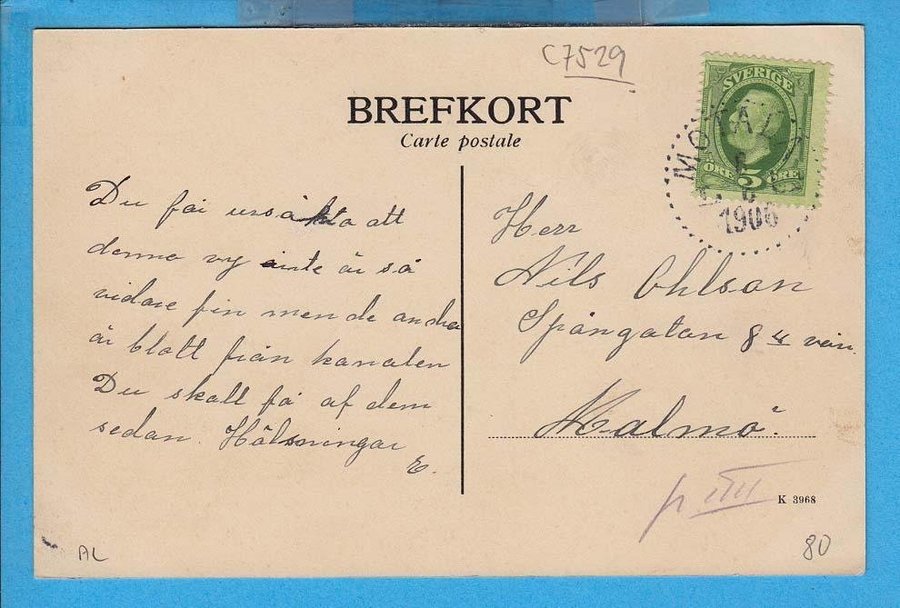 C7529
BREFKORT
Carte postale
SVERIGE
ÖRE 5 ÖRE
1906
Du får ursäkta att
denna vy inte är så
vidare fin men de andra
är blott från kanalen
Du skall få af dem
sedan. Hälsningar
E.
Herr
Nils Ohlson
Spångatan 8 II vån.
Malmö.
K 3968
AL
80